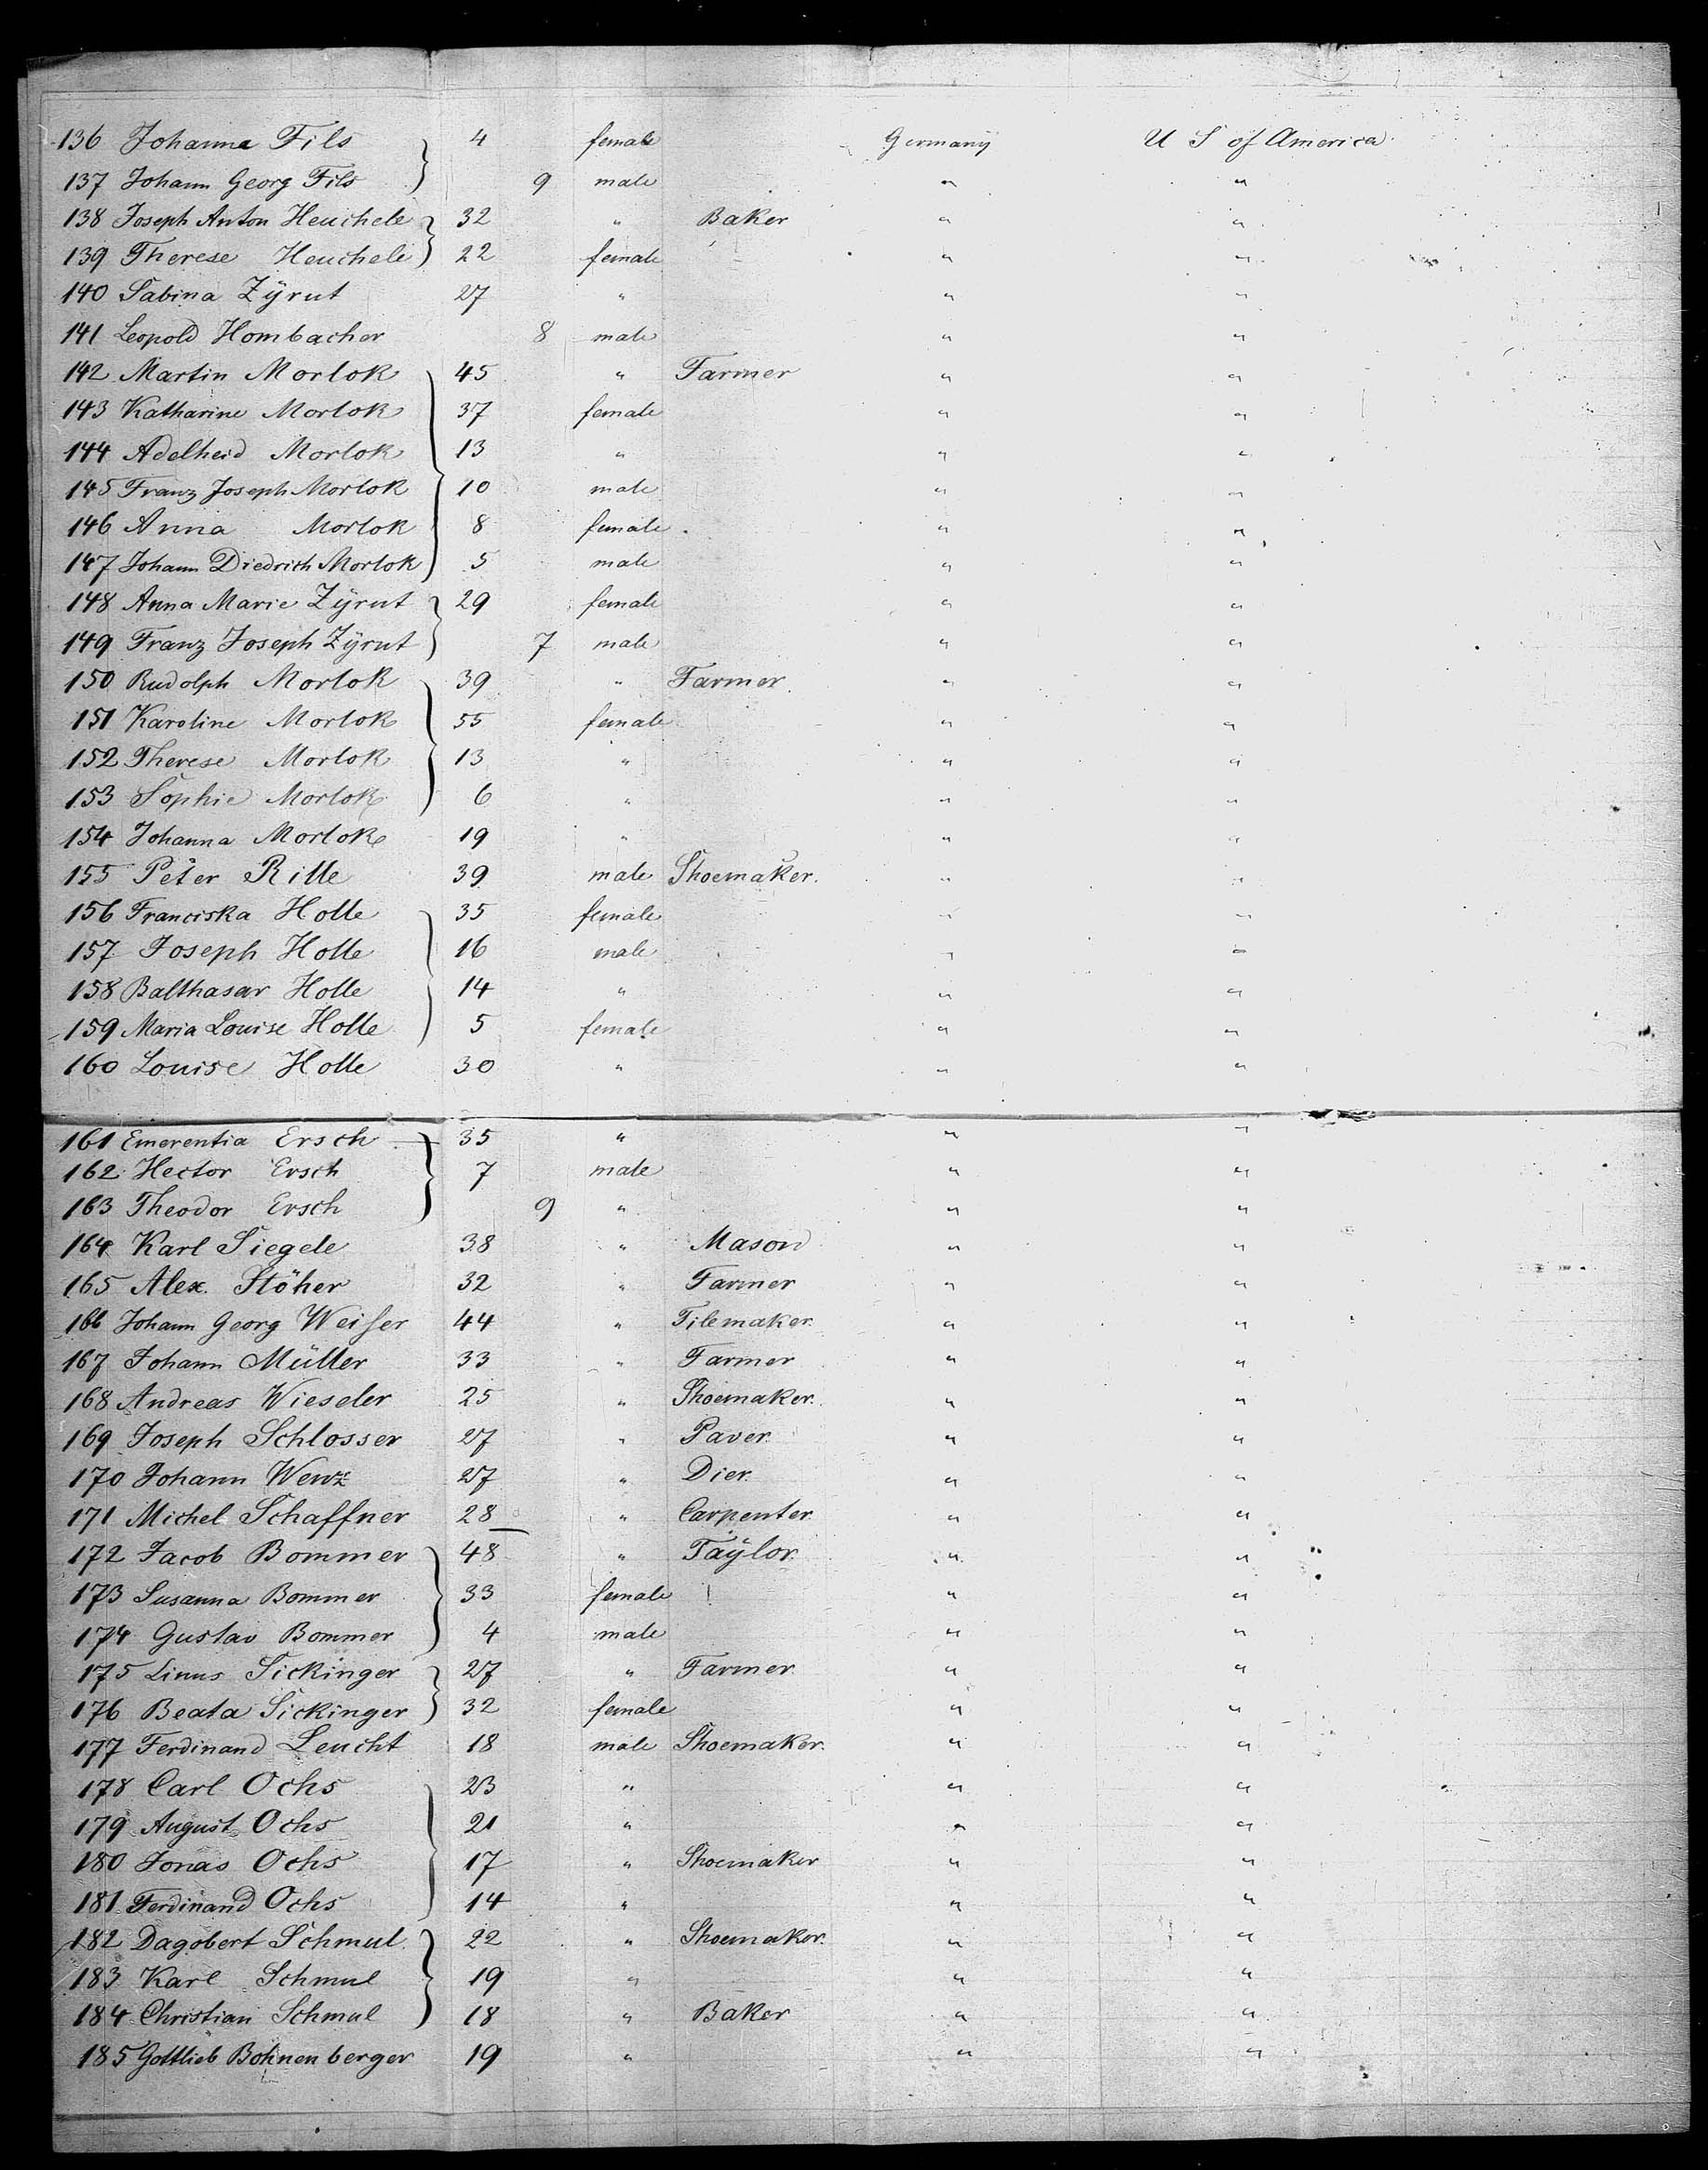 136 Johanna Fils 4 female Germany U S of America
137 Johann Georg Fils 9 male " "
138 Joseph Anton Heuchele 32 " Baker " "
139 Therese Heuchele 22 female " "
140 Sabina Zÿrut 27 " " "
141 Leopold Hombacher 8 male " "
142 Martin Morlok 45 " Farmer " "
143 Katharine Morlok 37 female " "
144 Adelheid Morlok 13 " " "
145 Franz Joseph Morlok 10 male " "
146 Anna Morlok 8 female " "
147 Johann Diedrich Morlok 5 male " "
148 Anna Marie Zÿrut 29 female " "
149 Franz Joseph Zÿrut 7 male " "
150 Rudolph Morlok 39 " Farmer " "
151 Karoline Morlok 55 female " "
152 Therese Morlok 13 " " "
153 Sophie Morlok 6 " " "
154 Johanna Morlok 19 " " "
155 Peter Rille 39 male Shoemaker. " "
156 Franciska Holle 35 female " "
157 Joseph Holle 16 male " "
158 Balthasar Holle 14 " " "
159 Maria Louise Holle 5 female " "
160 Louise Holle 30 " " "
161 Emerentia Ersch 35 " " "
162 Hector Ersch 7 male " "
163 Theodor Ersch 9 " " "
164 Karl Siegele 38 " Mason " "
165 Alex. Stöher 32 " Farmer " "
166 Johann Georg Weißer 44 " Tilemaker. " "
167 Johann Müller 33 " Farmer " "
168 Andreas Wieseler 25 " Shoemaker. " "
169 Joseph Schlosser 27 " Paver. " "
170 Johann Wenz 27 " Dier. " "
171 Michel Schaffner 28 " Carpenter. " "
172 Jacob Bommer 48 " Taÿlor. " "
173 Susanna Bommer 33 female " "
174 Gustav Bommer 4 male " "
175 Linus Sickinger 27 " Farmer. " "
176 Beata Sickinger 32 female " "
177 Ferdinand Leucht 18 male Shoemaker. " "
178 Carl Ochs 23 " " "
179 August Ochs 21 " " "
180 Jonas Ochs 17 " Shoemaker " "
181 Ferdinand Ochs 14 " " "
182 Dagobert Schmul. 22 " Shoemaker. " "
183 Karl Schmul 19 " " "
184 Christian Schmul 18 " Baker " "
185 Gottlieb Bohnenberger 19 " " "